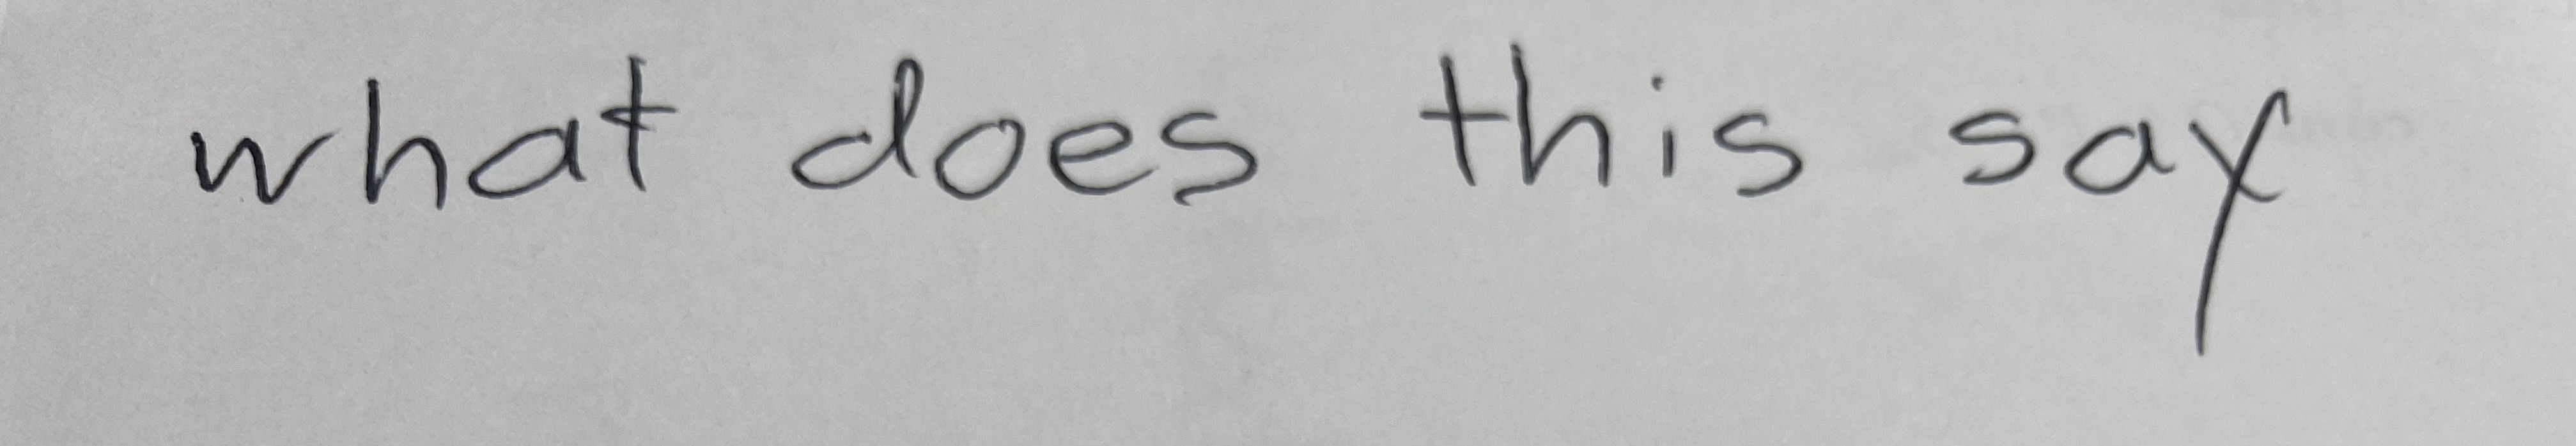 what does this say